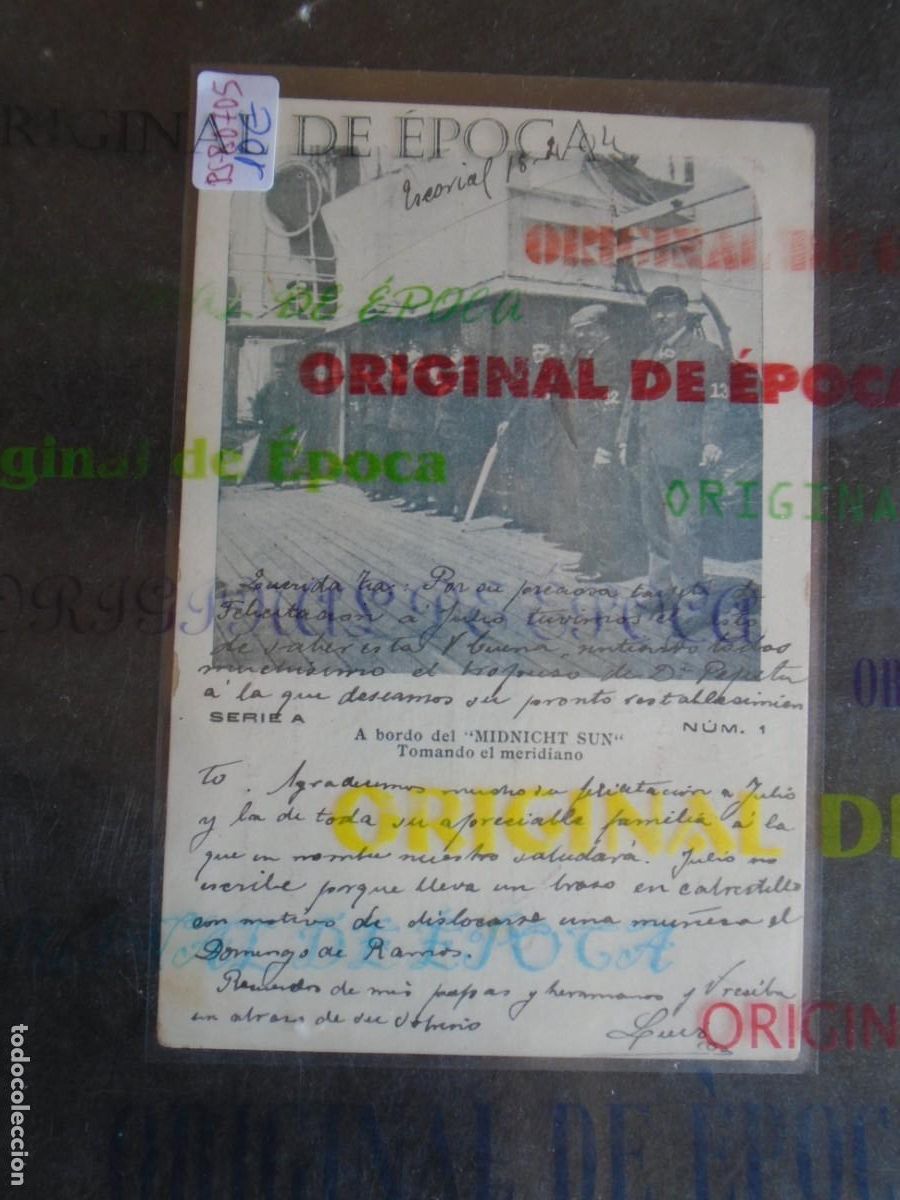 PS-B0705
10€
ORIGINAL DE ÉPOCA
Escorial 18-4
ORIGINAL DE
DE ÉPOCA
ORIGINAL DE ÉPOCA
13
ginal de Época
ORIGINA
Querida tia: Por su preciosa tarjeta de
Felicitacion á Julio tuvimos el
de saber esta V buena, sintiendo todos
muchisimo el de Dª Pepeta
á la que deseamos su pronto restablesimien
OR
SERIE A
NÚM. 1
A bordo del "MIDNICHT SUN"
Tomando el meridiano
to. Agradecemos mucho su felicitacion a Julio
y la de toda su apreciable familia á la
que en nombre nuestro saludará. Julio no
escribe porque lleva un braso en cabrestillo
con motivo de dislocarse una muñeca el
Domingo de Ramos.
Recuerdos de mis papas y hermanos y V reciba
un abrazo de su sobrino Luis
ORIGINAL DE
DE ÉPOCA
ORIGIN
ORIGINAL DE ÈPOC
todocoleccion